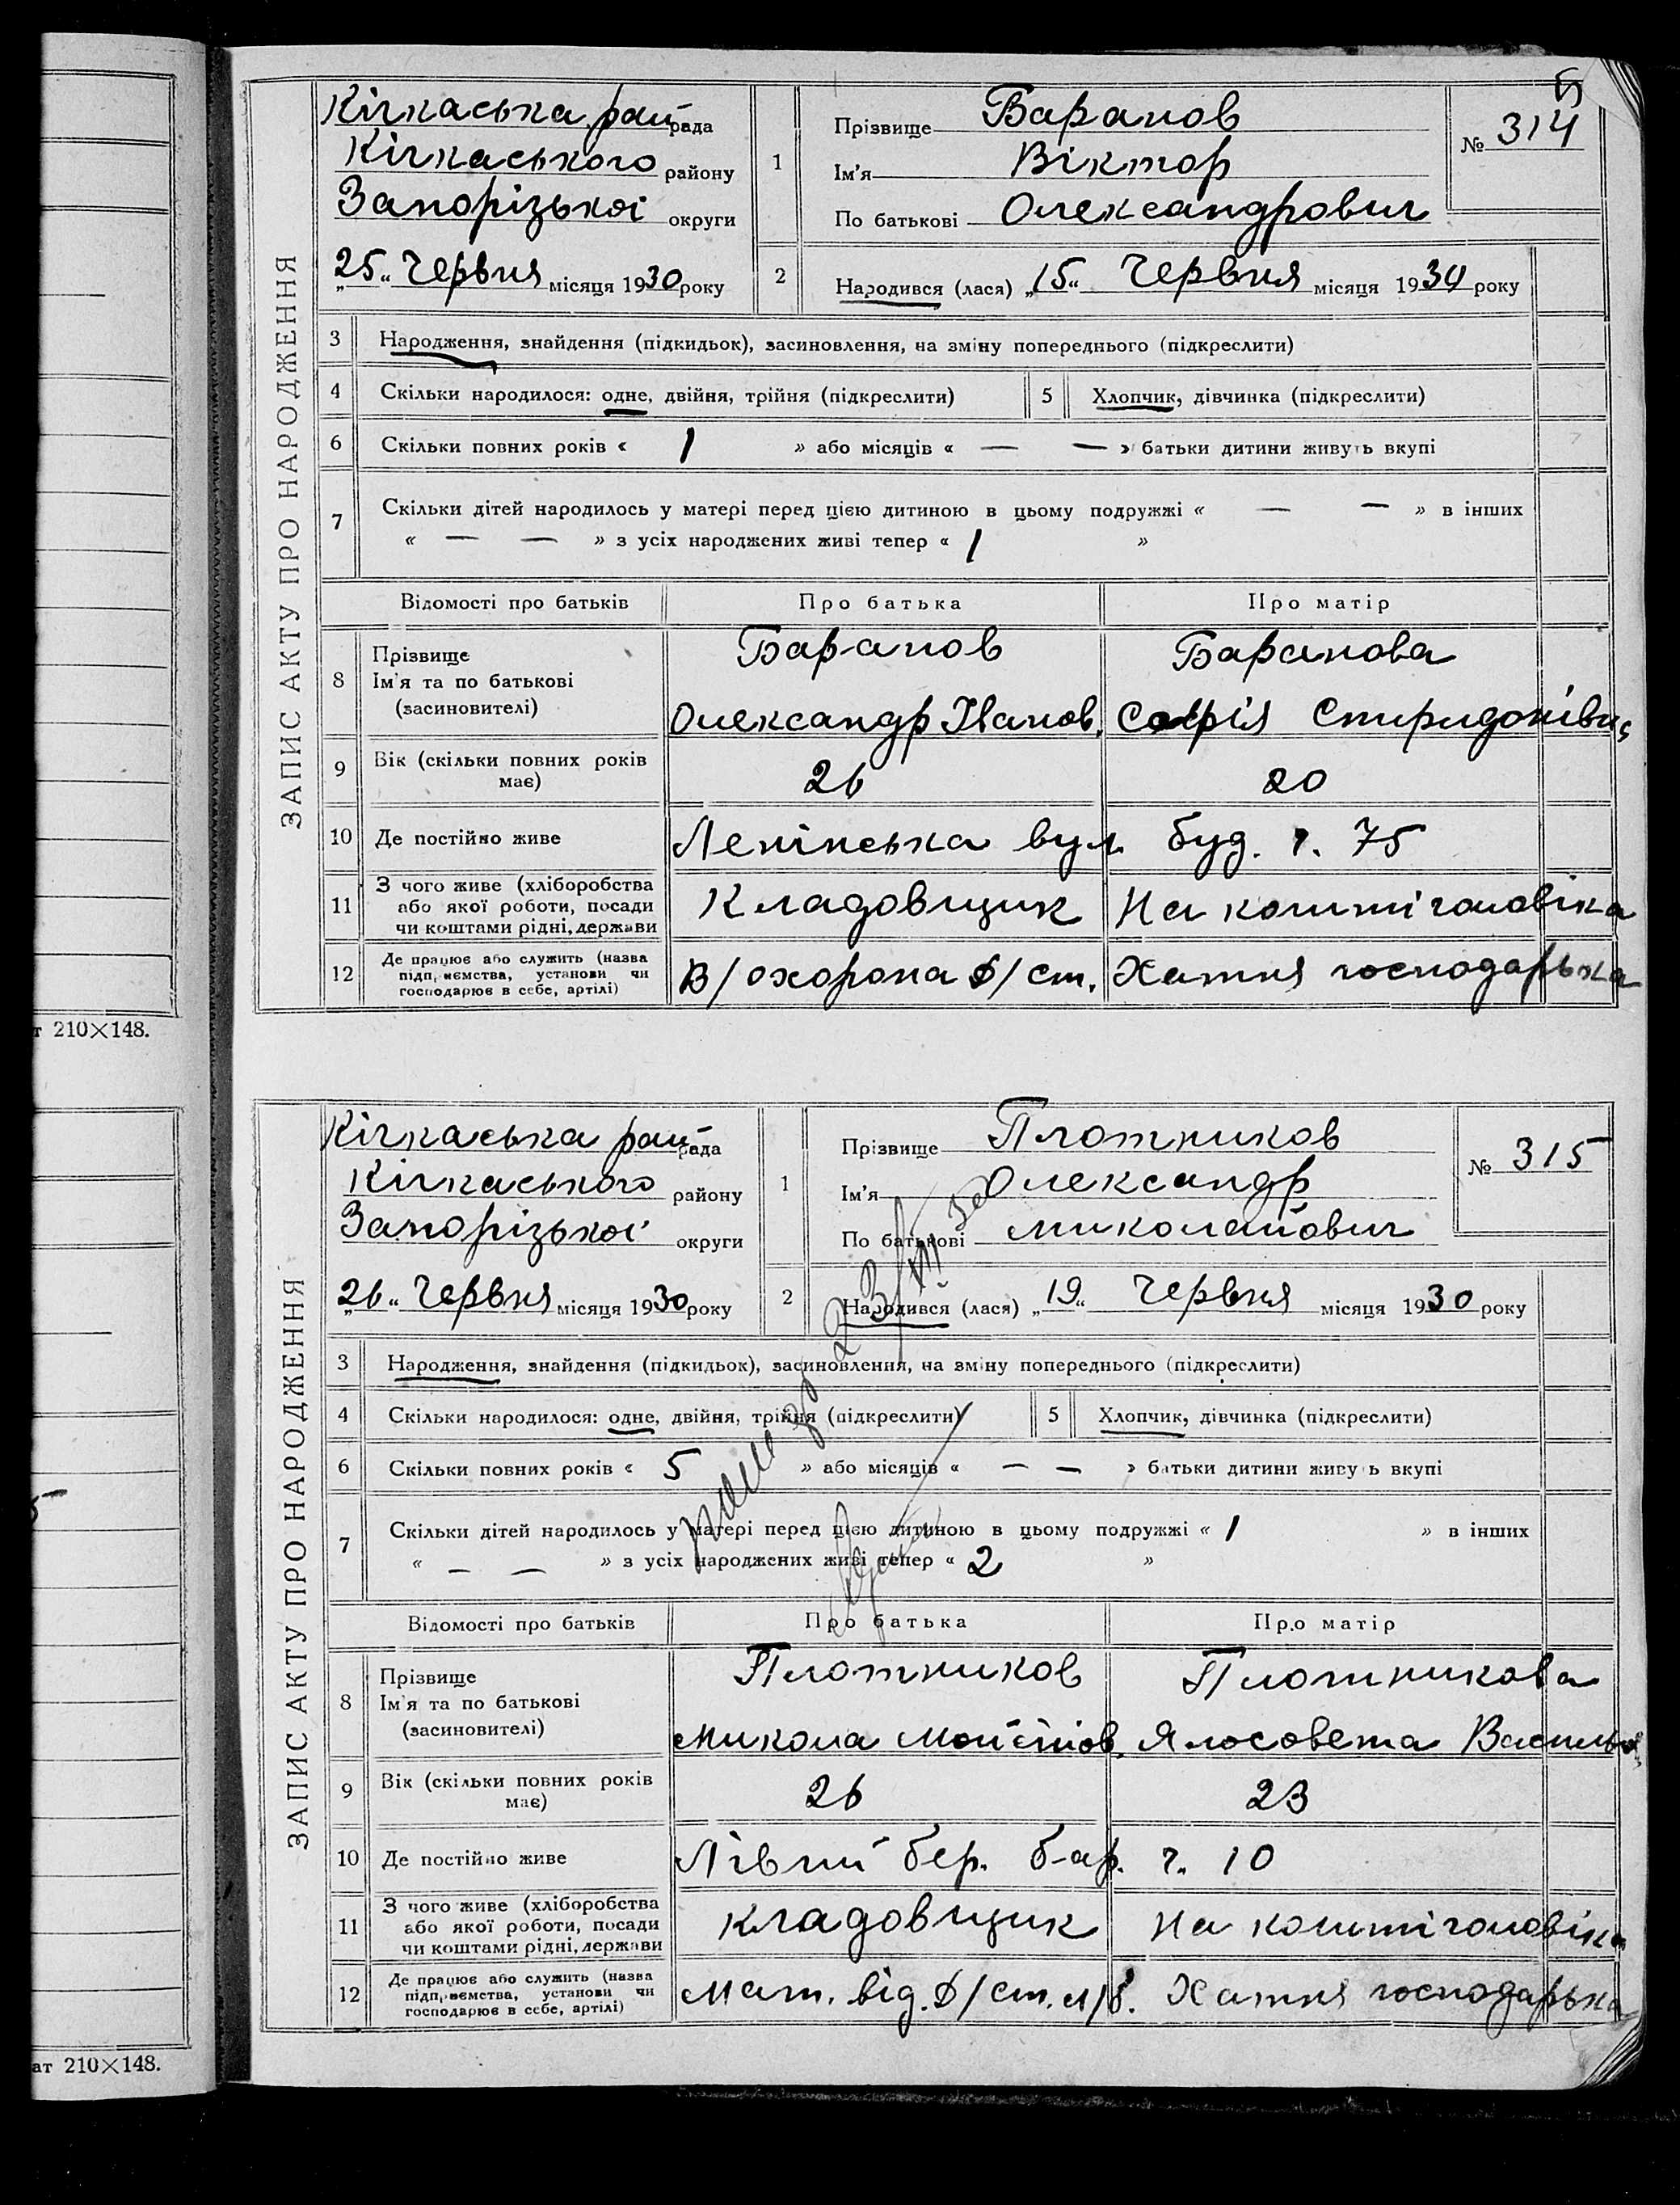 т 210×148.
ат 210×148.
5
ЗАПИС АКТУ ПРО НАРОДЖЕННЯ
Кічкаська рай рада
Кічкаського району
Запорізької округи
„25“ Червня місяця 1930 року
1
Прізвище Баранов
Ім'я Віктор
По батькові Олександрович
№ 314
2
Народився (лася) „15“ Червня місяця 1930 року
3 Народження, знайдення (підкидьок), засиновлення, на зміну попереднього (підкреслити)
4 Скільки народилося: одне, двійня, трійня (підкреслити) 5 Хлопчик, дівчинка (підкреслити)
6 Скільки повних років « 1 » або місяців « — — » батьки дитини живуть вкупі
7 Скільки дітей народилось у матері перед цією дитиною в цьому подружжі « — — » в інших
« — — » з усіх народжених живі тепер « 1 »
Відомості про батьків Про батька Про матір
8 Прізвище Баранов Баранова
Ім'я та по батькові
(засиновителі) Олександр Іванов. Софія Спиридонівна
9 Вік (скільки повних років має) 26 20
10 Де постійно живе Ленінська вул буд. ч. 75
11 З чого живе (хліборобства або якої роботи, посади чи коштами рідні, держави Кладовщик На кошти чоловіка
12 Де працює або служить (назва підприємства, установи чи господарює в себе, артілі) В/охорона Д/ст. Хатня господарька
ЗАПИС АКТУ ПРО НАРОДЖЕННЯ
Кічкаська рай рада
Кічкаського району
Запорізької округи
„26“ Червня місяця 1930 року
1
Прізвище Плотников
Ім'я Олександр
По батькові Миколайович
№ 315
2
Народився (лася) „19“ Червня місяця 1930 року
3 Народження, знайдення (підкидьок), засиновлення, на зміну попереднього (підкреслити)
4 Скільки народилося: одне, двійня, трійня (підкреслити) 5 Хлопчик, дівчинка (підкреслити)
6 Скільки повних років « 5 » або місяців « — — » батьки дитини живуть вкупі
7 Скільки дітей народилось у матері перед цією дитиною в цьому подружжі « 1 » в інших
« — — » з усіх народжених живі тепер « 2 »
Відомості про батьків Про батька Про матір
8 Прізвище Плотников Плотникова
Ім'я та по батькові
(засиновителі) Микола Ялосовета
9 Вік (скільки повних років має) 26 23
10 Де постійно живе Лівий бер. бар. ч. 10
11 З чого живе (хліборобства або якої роботи, посади чи коштами рідні, держави кладовщик На кошти чоловіка
12 Де працює або служить (назва підприємства, установи чи господарює в себе, артілі) Мат. від. Д/ст. л/б. Хатня господарька